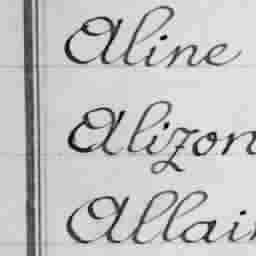 Aline
Alizon
Allain